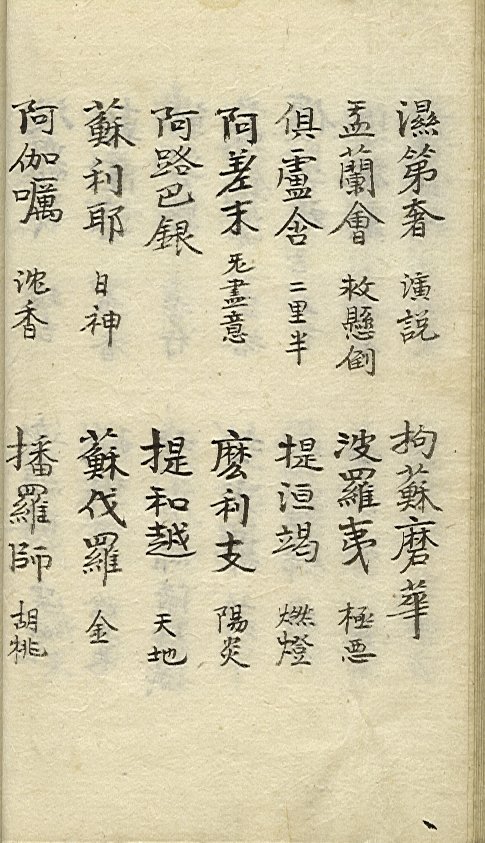 濕第奢 演説 拘蘇磨華
盂蘭會 救懸倒 波羅夷 極悪
俱盧舎 二里半 提洹竭 燃燈
阿差末 无盡意 麽利支 陽炎
阿路巴 銀 提和越 天地
蘇利耶 日神 蘇伐羅 金
阿伽嚂 沈香 播羅師 胡桃